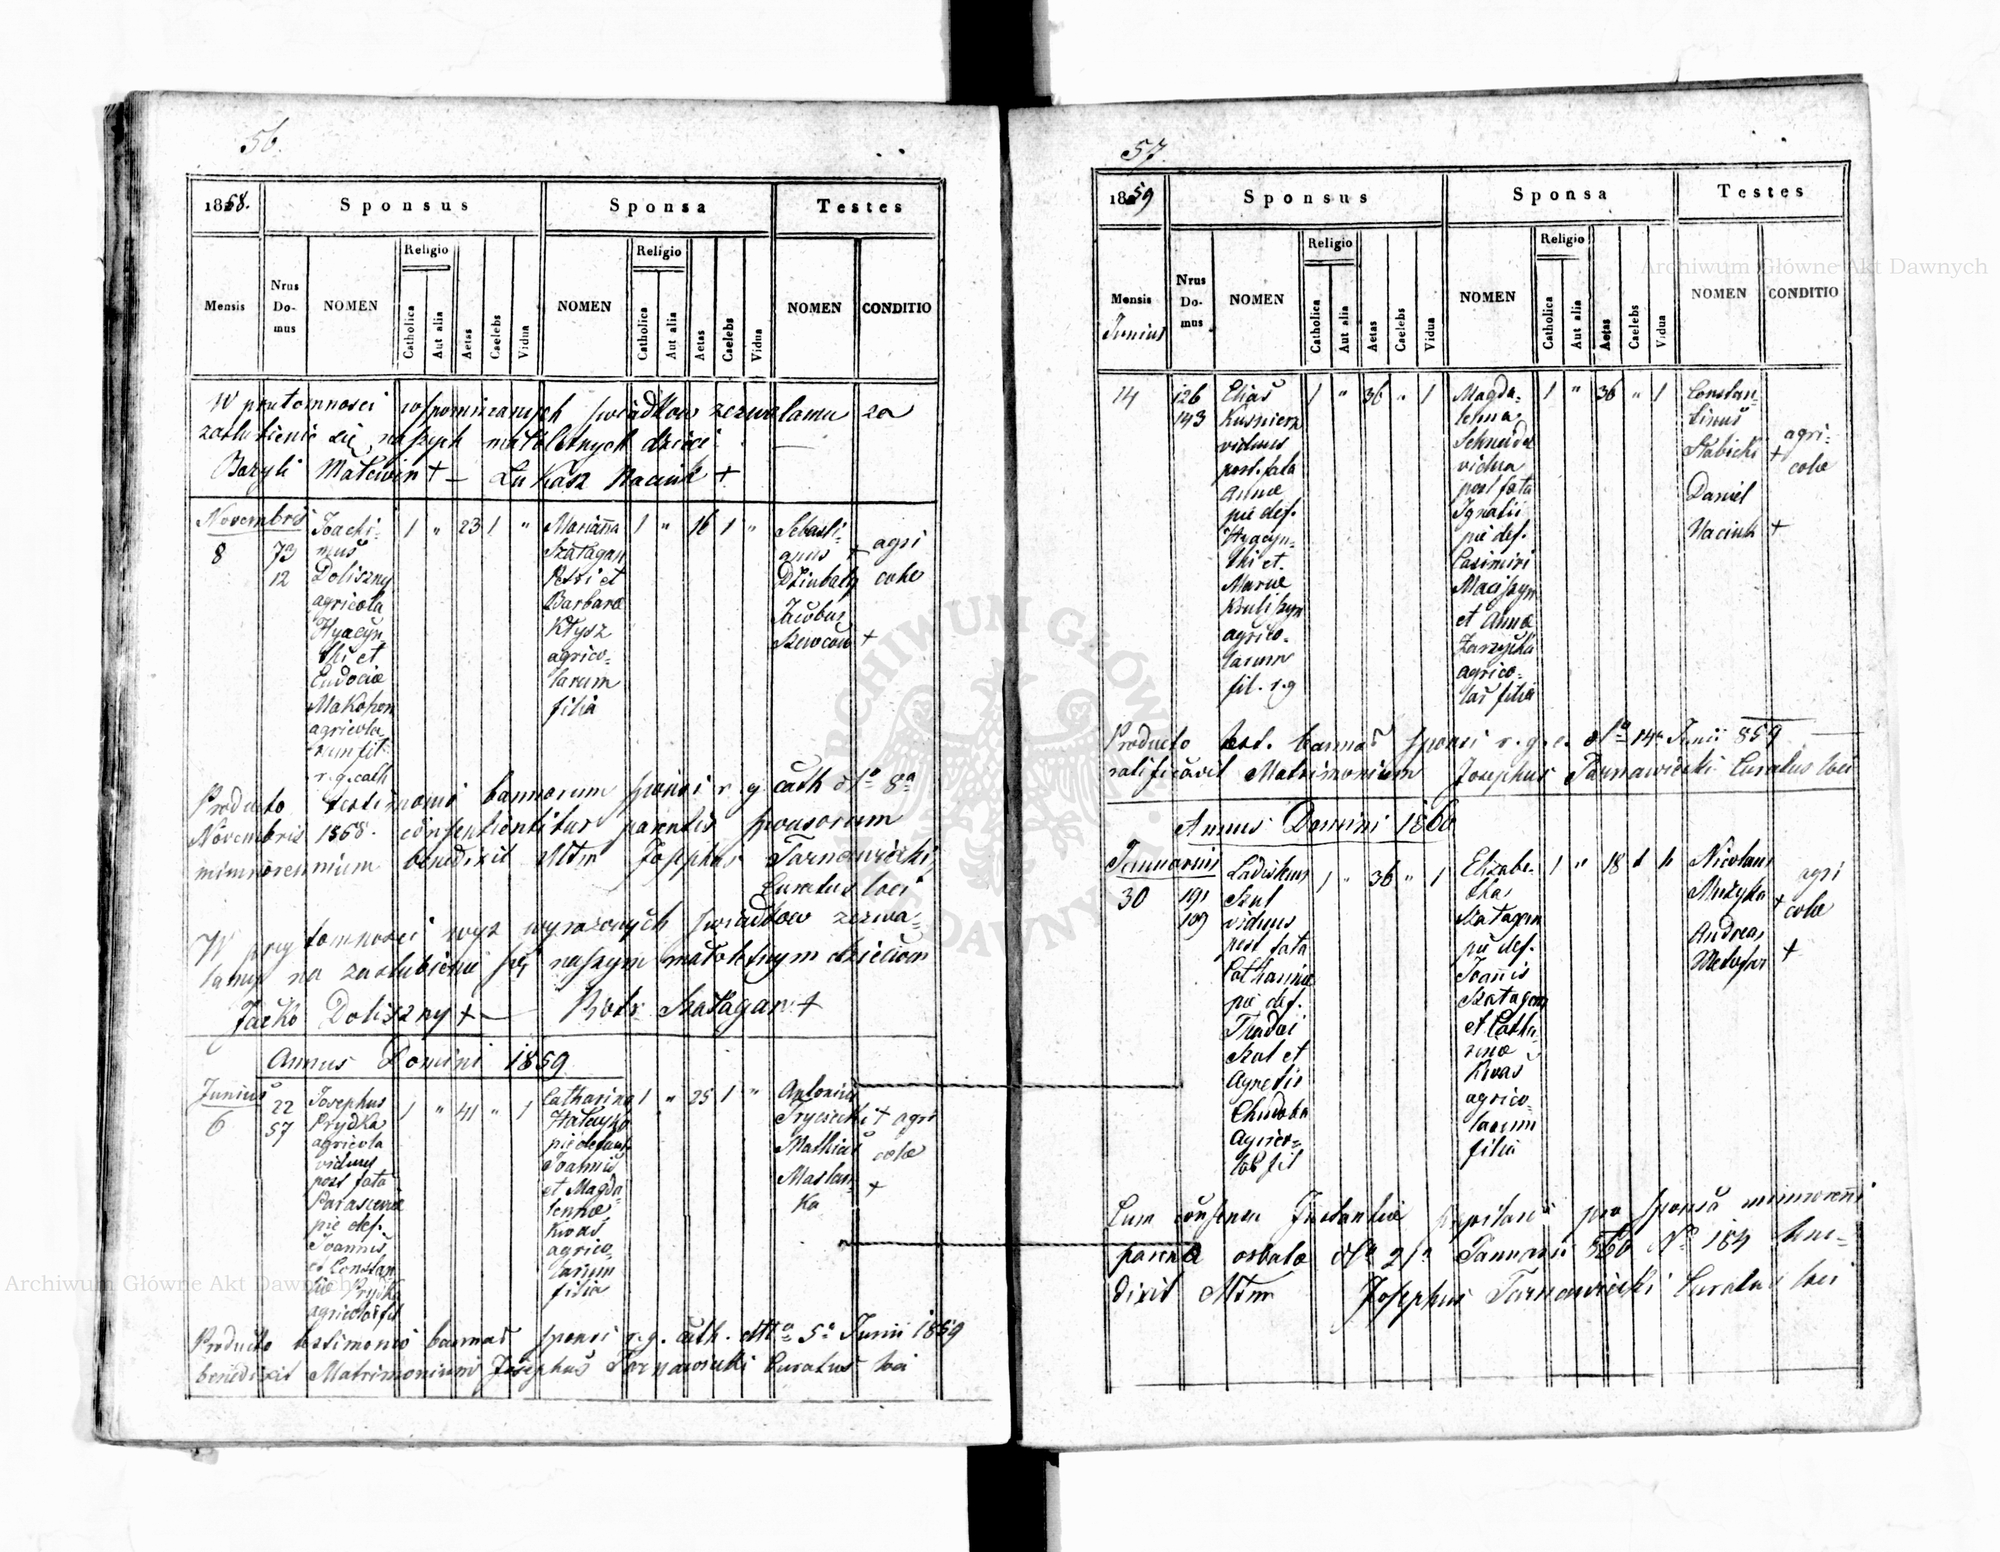 56.
1858.
Sponsus
Sponsa
Testes
Mensis
Nrus Do-mus
NOMEN
Religio
Catholica
Aut alia
Aetas
Caelebs
Vidua
NOMEN
Religio
Catholica
Aut alia
Aetas
Caelebs
Vidua
NOMEN
CONDITIO
W przytomnosci wspomnianych swiadkow zezwalamy za
zaslubienie się naszych małoletnych dzieci
Bazyli + — Łukasz Naciuk +
Novembris
8
73
12
Joachi-
mus
Doliszny
agricola
Hyacyn-
thi et
Eudociæ
Makohon
agricola
rum fil.
r. g. cath
1 " 23 1 "
Marianna
Szatagan
Petri et
Barbaræ
Kłysz
agrico-
larum
filia
1 " 16 1 "
Sebasti-
anus +
Dziubaty
Jacobus
Szewcow +
agri
colæ
Producto testimonio bannorum sponsi r. g. cath dto 8a
Novembris 1858. consentientibus parentis sponsorum
minorennium benedixit Mtm Josephus Tarnawiecki
Curatus loci
W przytomnosci wyz wyrazonych swiadkow zezwa-
lamy na zaslubienie się naszym małoletnym dzieciom
Jacko Doliszny + — Piotr Szatagan +
Annus Domini 1859
Junius
6
22
57
Josephus
Prydka
agricola
viduus
post fata
Parascevæ
pie def.
Joannis
et Constan
tiæ Prydka
agricolar fil
1 " 41 " 1
Catharina
Hataszko
pie defunt
Joannis
et Magda
lennæ
Kwas
agrico-
larum
filia
1 " 25 1 "
Antonius
+
Mathias
Maslan-
ka +
agri
colæ
Producto testimonio bannor sponsi r. g. cath. dtto 5a Junii 1859
benedixit Matrimonium Josephus Tarnawiecki Curatus loci
57.
1859
Sponsus
Sponsa
Testes
Mensis
Junius
Nrus Do-mus
NOMEN
Religio
Catholica
Aut alia
Aetas
Caelebs
Vidua
NOMEN
Religio
Catholica
Aut alia
Aetas
Caelebs
Vidua
NOMEN
CONDITIO
14
126
143
Elias
Kusnierz
viduus
post fata
Annæ
pie def.
Hyacyn-
thi et
Mariæ
agrico-
larum
fil. r. g
1 " 36 " 1
Magda-
lenna
Schneider
vidua
post fata
Ignatii
pie def.
Casimiri
et Annæ
Zarzycka
agrico-
lar filia
1 " 36 " 1
Constan-
tinus
Słabicki +
Daniel
Naciuk +
agri-
colæ
Producto test. bannor sponsi r. g. c. dto 14a Junii 859
ratificavit Matrimonium Josephus Tarnawiecki Curatus loci
Annus Domini 1860
Januarius
30
191
109
Ladislaus
Szul
viduus
post fata
Catharinæ
pie def.
Thadei
Szul et
Agnetis
Chudoba
agrico-
lar fil
1 " 36 " 1
Elizabe-
tha
Szatagan
pie def.
Joannis
Szatagan
et Catha-
rinæ
Kwas
agrico-
larum
filia
1 " 18 1 "
Nicolaus
Muzyka +
Andreas
+
agri
colæ
Cum consensu Instantiæ pupilaris pro sponsa minorenni
orbata dto 21a Januarii 860 No 184 bene-
dixit Mtm Josephus Tarnawiecki Curatus loci
ARCHIWUM GŁÓWNE AKT DAWNYCH
Archiwum Główne Akt Dawnych
Archiwum Główne Akt Dawnych